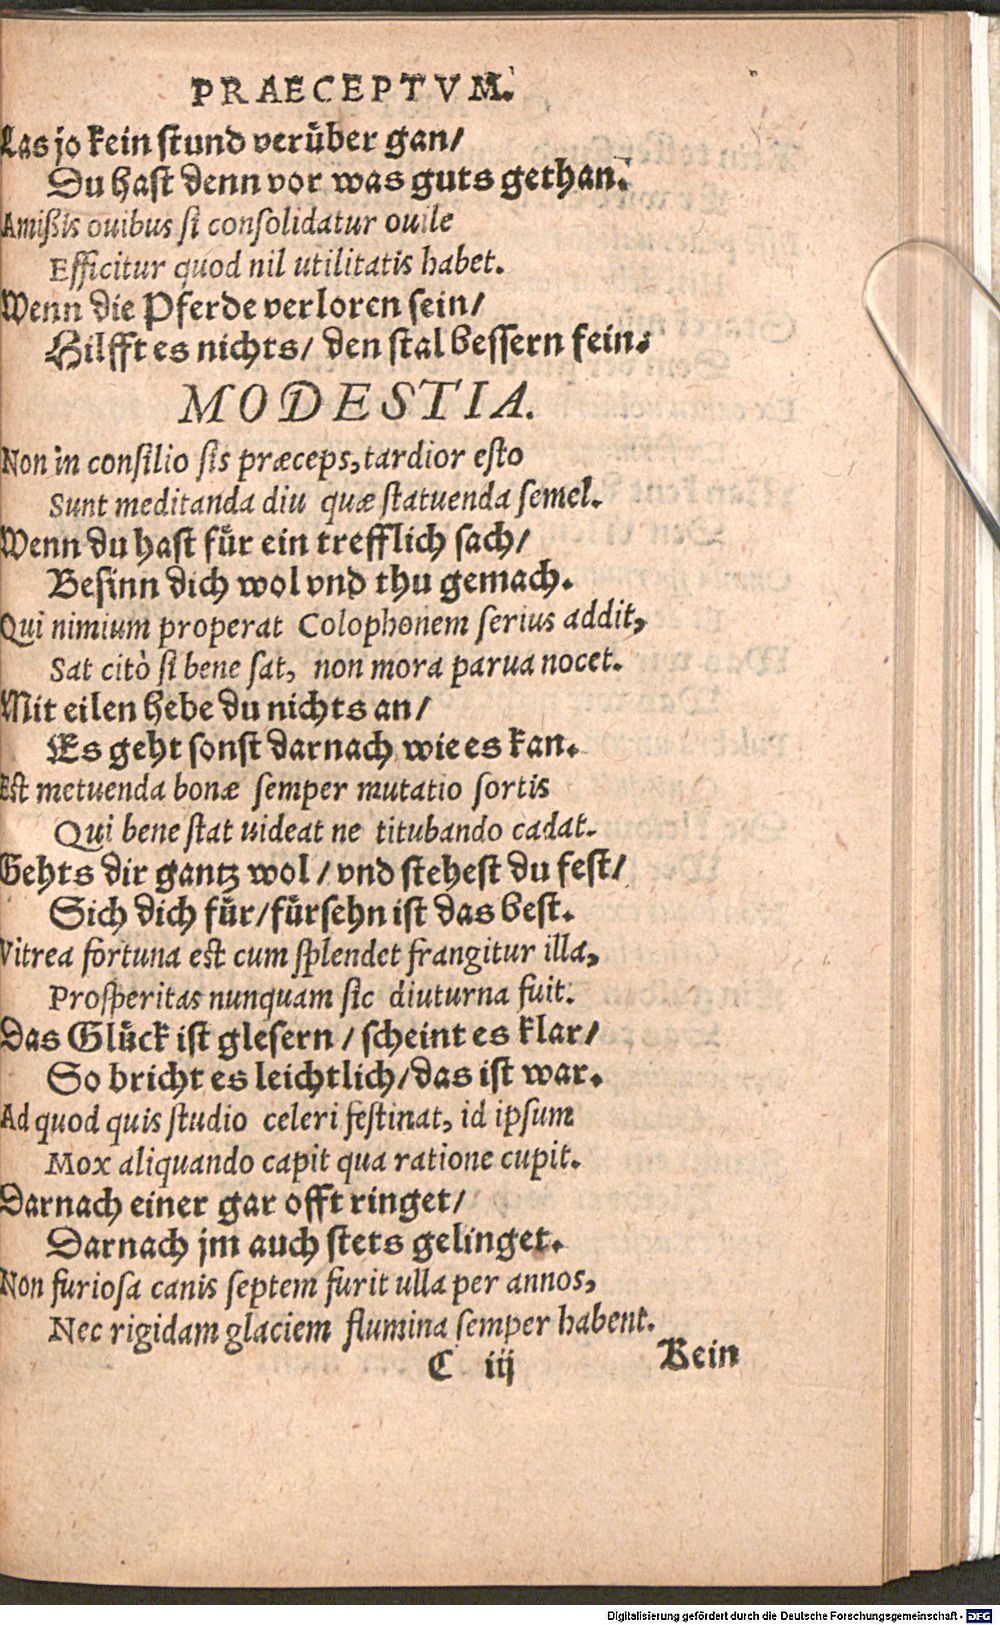 PRAECEPTVM.
Las jo kein stund verüber gan/
Du hast denn vor was guts gethan.
Amißis ouibus si consolidatur ouile
Efficitur quod nil utilitatis habet.
Wenn die Pferde verloren sein/
Hilfft es nichts/ den stal bessern fein.
MODESTIA.
Non in consilio sis præceps, tardior esto
Sunt meditanda diu quæ statuenda semel.
Wenn du hast für ein trefflich sach/
Besinn dich wol vnd thu gemach.
Qui nimium properat Colophonem serius addit,
Sat citò si bene sat, non mora parua nocet.
Mit eilen hebe du nichts an/
Es geht sonst darnach wie es kan.
Est metuenda bonæ semper mutatio sortis
Qui bene stat uideat ne titubando cadat.
Gehts dir gantz wol/ vnd stehest du fest/
Sich dich für/ fürsehn ist das best.
Vitrea fortuna est cum splendet frangitur illa,
Prosperitas nunquam sic diuturna fuit.
Das Glück ist glesern/ scheint es klar/
So bricht es leichtlich/ das ist war.
Ad quod quis studio celeri festinat, id ipsum
Mox aliquando capit qua ratione cupit.
Darnach einer gar offt ringet/
Darnach jm auch stets gelinget.
Non furiosa canis septem furit ulla per annos,
Nec rigidam glaciem flumina semper habent.
C iij Kein
Digitalisierung gefördert durch die Deutsche Forschungsgemeinschaft - DFG